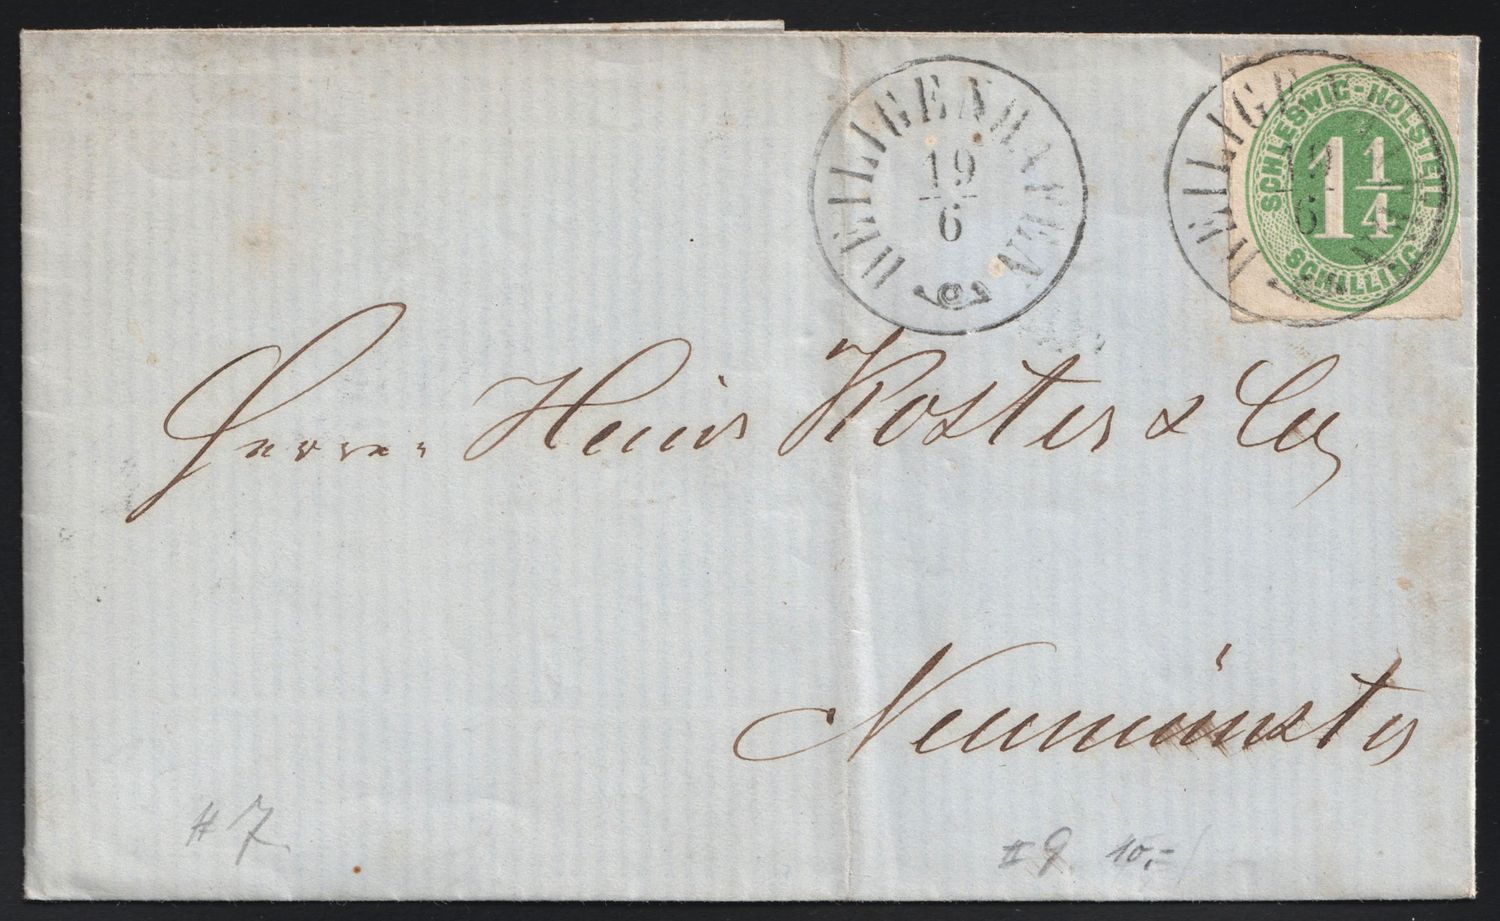 HEILIGENHAFEN
19
6
HEILIGENHAFEN
19
6
SCHLESWIG-HOLSTEIN
1 1/4
SCHILLING
Herren Heinr Köster & Co
Neumünster
# 7
# 9 40,-